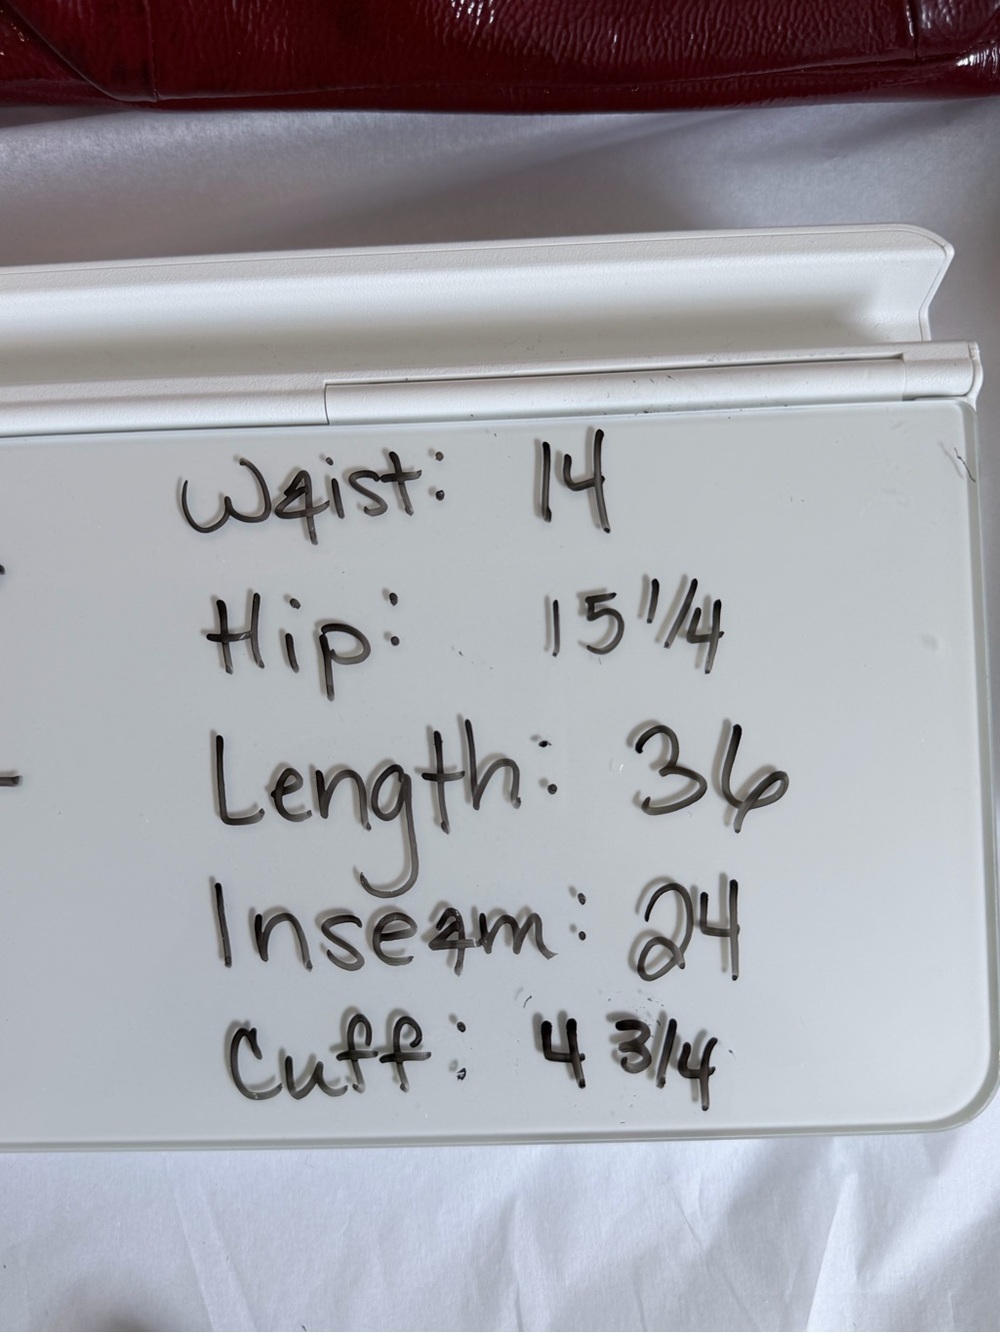 Waist: 14
Hip: 15 1/4
Length: 36
Inseam: 24
Cuff: 4 3/4